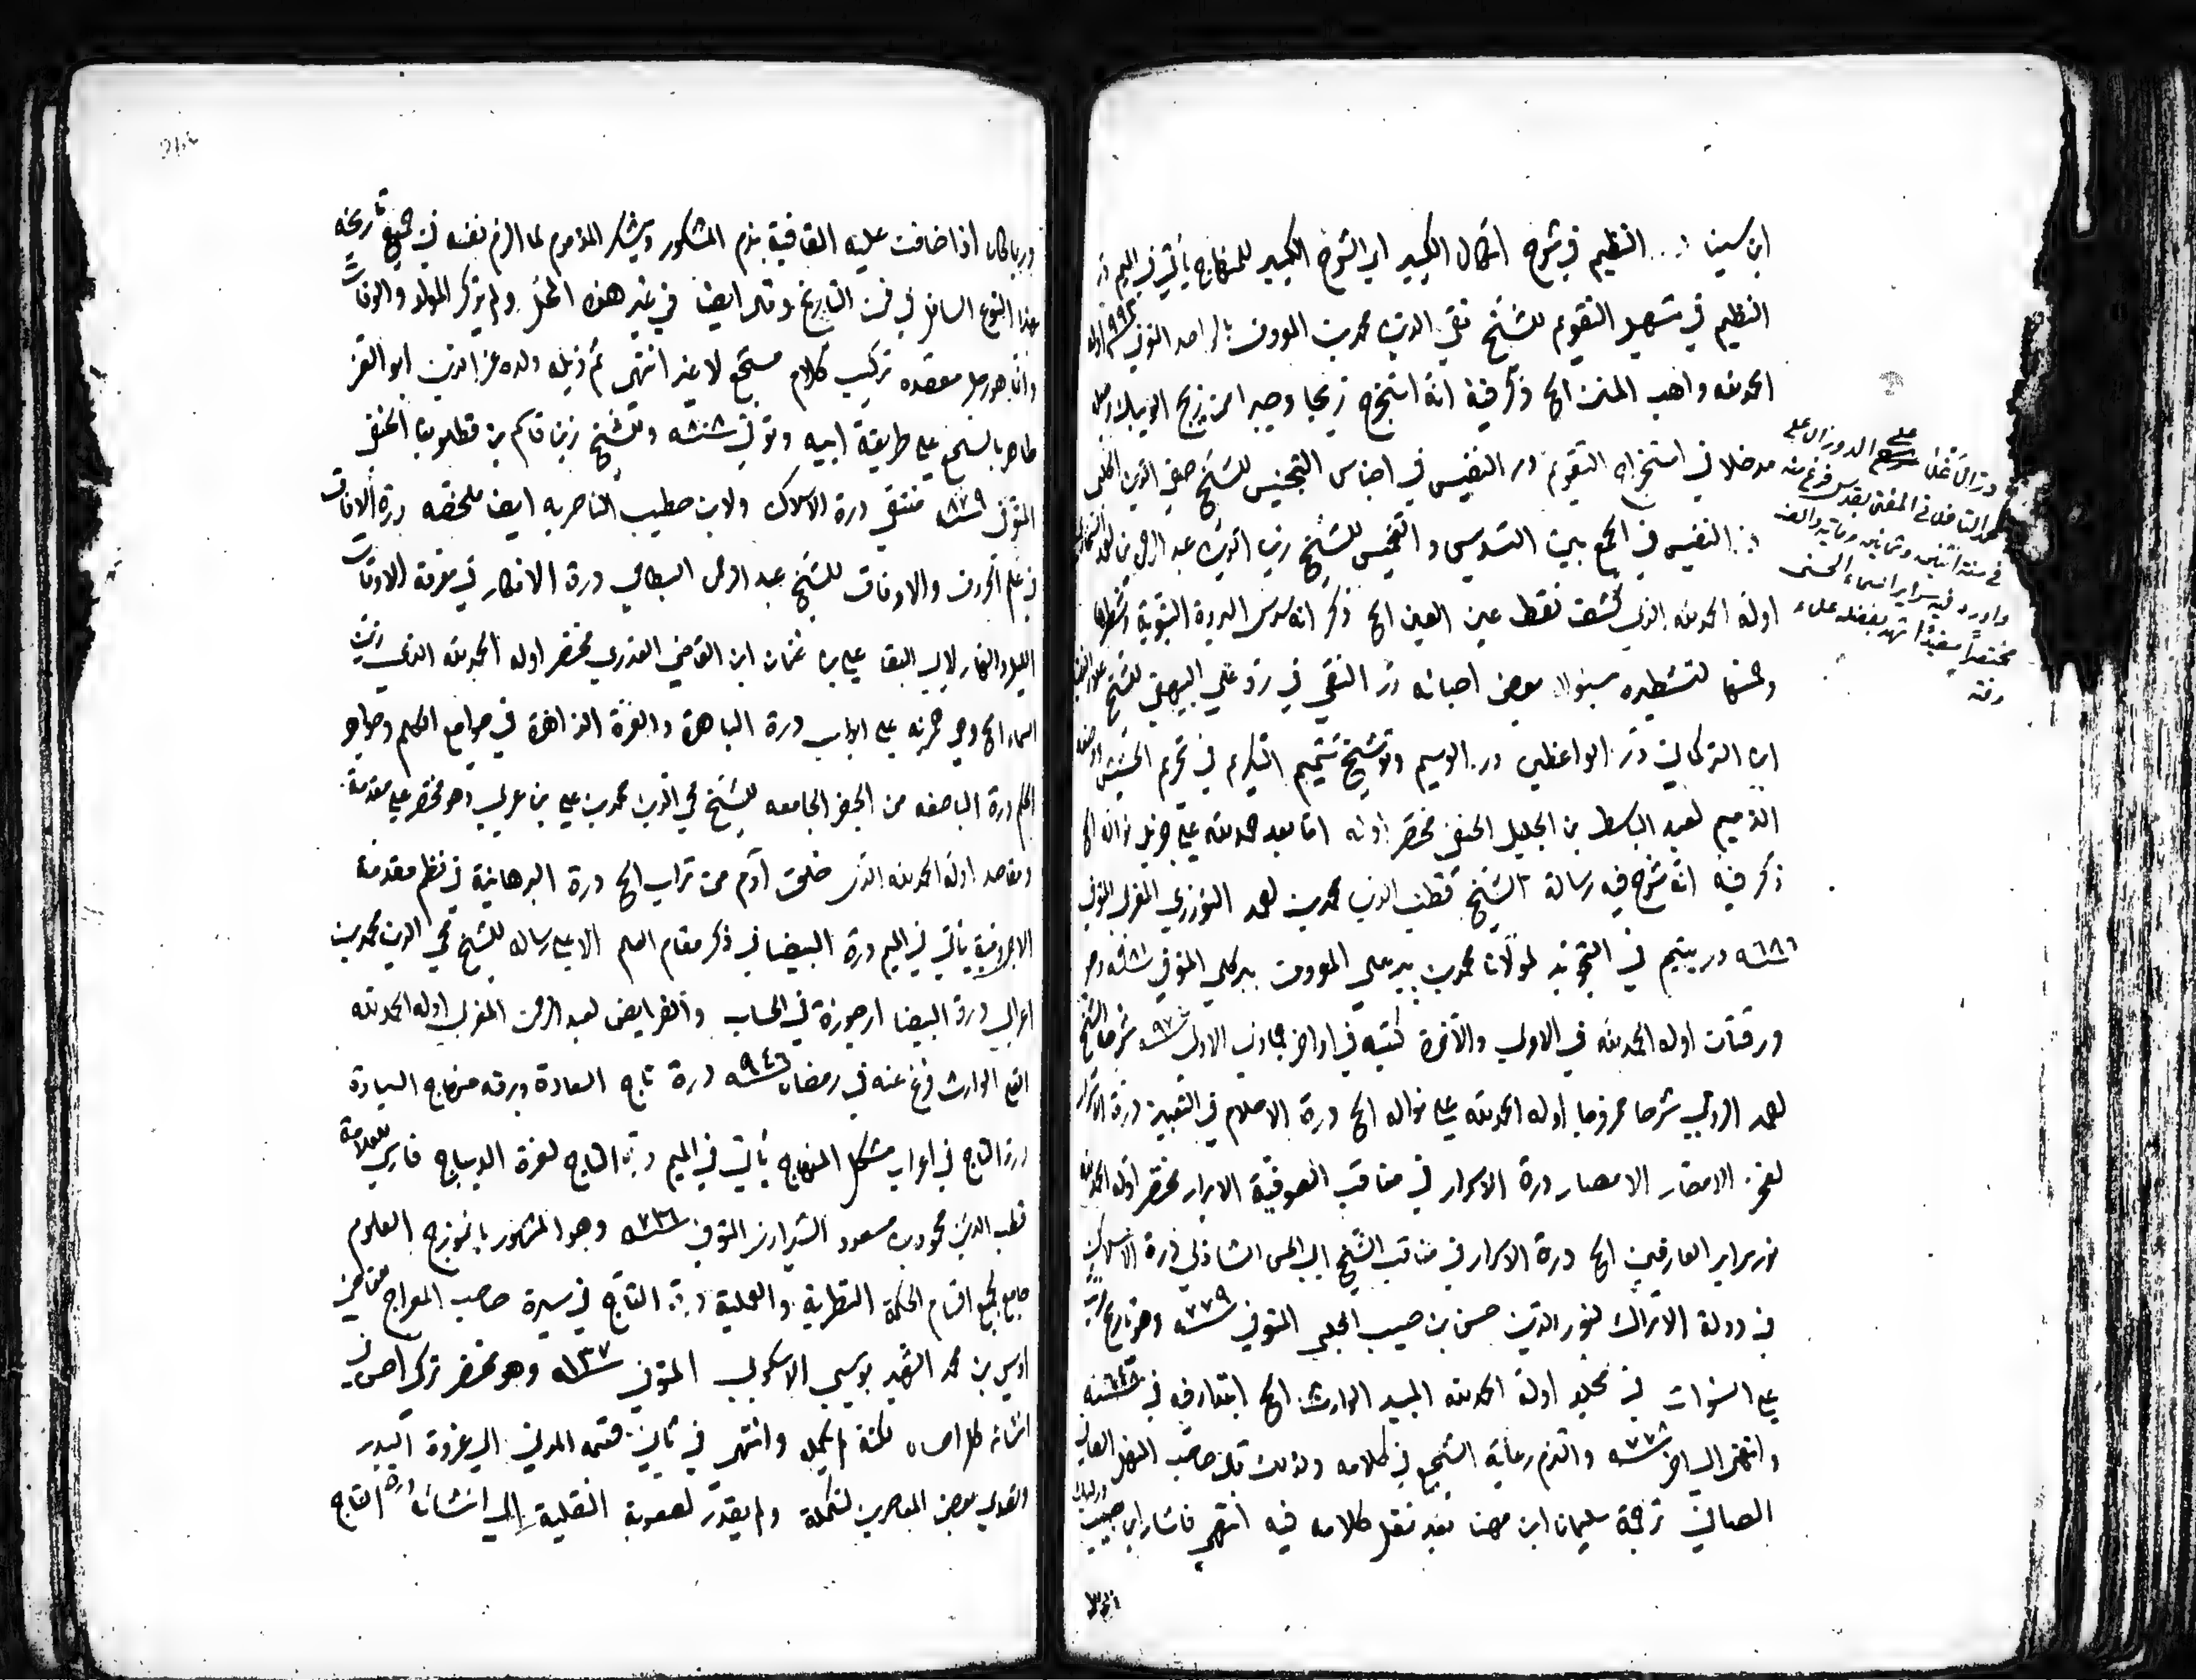 ابن سينا در النظيم في شرح الكبير اي الشرح الكبير للمنهاج يأتي في الميم در
النظيم في تسهيل التقويم للشيخ تقي الدين محمد بن المعروف بالراصد المتوفى ٩٩٣ اوله
الحمد لله واهب المنن الخ ذكر فيه انه استخرج زيجا وجيزا من زيج الوغ بيك
مدخلا في استخراج التقويم در النفيس في اجناس التجنيس للشيخ صفي الدين الحلي
در النفيس في الجمع بين التسديس والتخميس للشيخ زين الدين عبد الرحمن بن
اوله الحمد لله الذي كشف نقط عين العين الخ ذكر انه سدس البردة النبوية
وخمسها لتشطيره بسؤال بعض احبائه در النقي في رد على البيهقي للشيخ علاء الدين
ابن التركماني در الواعظين در الوسيم وتوشيح تتميم التكريم في تحريم الحشيش
الذميم لعبد الباسط بن الخليل الحنفي مختصر اوله اما بعد حمد لله على جزيل نواله الخ
ذكر فيه انه شرح فيه رسالة الشيخ قطب الدين محمد بن احمد التوزري المغربي المتوفى
٦٨٦ در يتيم في التجويد لمولانا محمد بن بير علي المعروف ببركلي المتوفى ٩٨١ وهو
ورقتان اوله الحمد لله في الاولى والآخرة كتبه في اواخر جمادى الاولى ٩٧٤ شرحها الشيخ
احمد الرومي شرحا ممزوجا اوله الحمد لله على نواله الخ درة الاحلام في التعبير درة
لفخر الامصار درة الاسرار في مناقب الصوفية الابرار مختصر اوله الحمد لله
منور سراير العارفين الخ درة الاسرار في مناقب الشيخ ابي الحسن الشاذلي درة الاسلاك
في دولة الاتراك لنور الدين حسن بن حبيب الحلبي المتوفى ٧٧٩ وهو تاريخ مرتب
على السنوات في مجلد اوله الحمد لله المبيد الوارث الخ ابتدا فيه في سنة ٦٤٨
وانتهى الى اخر ٧٧٨ والتزم رعاية السجع في كلامه ولذلك قال صاحب المنهل
الصافي ترجمة سليمان ابن مهنا بعد نقل كلامه فيه انتهى ما شار ابن حبيب
در الغلى على الدوران
محمد التافلاتي المفتي بقدس فرغ منه
في سنة اثنين وثمانين وماية والف
واورد فيه سراير اسماء الحسنى
مختصرا مفيدا
وقته
وربما كان اذا ضاقت عليه القافية يذم المشكور ويشكر المذموم لما الزم نفسه في جميع تاريخه
بهذا النوع السافل في فن التاريخ وقال ايضا في غير هذا المحل ولم يذكر المولد والوفاة
وانما هو رجل مقصده تركيب كلام مسجع لا غير انتهى ثم ذيله ولده عز الدين ابو العز
طاهر بالسجع على طريقة ابيه وتوفي ٨٠٨ وللشيخ زين قاسم بن قطلوبغا الحنفي
المتوفى ٨٧٩ منتقى درة الاسلاك ولابن خطيب الناصرية ايضا ملخصه درة الافاق
في علم الحروف والاوفاق للشيخ عبد الرحمن البسطامي درة الافكار في معرفة الاوقات
الليل والنهار لابي البقا علي بن عثمان ابن القاضي العذري مختصر اوله الحمد لله الذي زين
السماء الخ وهي مرتبه على ابواب درة الباهرة والغرة الزاهرة في جوامع الكلم وجواهر
الحكم درة الناصعه من الجفر الجامعه للشيخ محي الدين محمد بن علي بن عربي وهو مختصر على مقدمة
ومقاصد اوله الحمد لله الذي خلق آدم من تراب الخ درة البرهانية في نظم مقدمة
الاجرومية يأتي في الميم درة البيضا في ذكر مقام العلم الاعلى رساله للشيخ محي الدين محمد بن
اعرابي درة البيضا ارجوزة في الحساب والفرايض لعبد الرحمن المغربي اوله الحمد لله
الوارث فرغ عنه في رمضان ٩٤٦ درة تاج السعادة وبرقه منهاج السيادة
درة التاج في اعراب مشكل المنهاج يأتي في الميم درة التاج لغرة الديباج فارسي للعلامة
قطب الدين محمود بن مسعود الشيرازي المتوفى ٧١٦ وهو المشهور بانموذج العلوم
جامع لجميع اقسام الحكمة النظرية والعملية درة التاج في سيرة صاحب المعراج
اويس بن محمد الشهير بويسي الاسكوبي المتوفى ١٠٣٧ وهو مختصر تركي احسن في
انشائه كل احسان لكنه لم يكمل وانتهى في ثاني قسمه المدني الى غزوة البدر
وتصدى بعض المعاصرين لتكملة ولم يقدر لصعوبة التقليد الى انشائه درة التاج